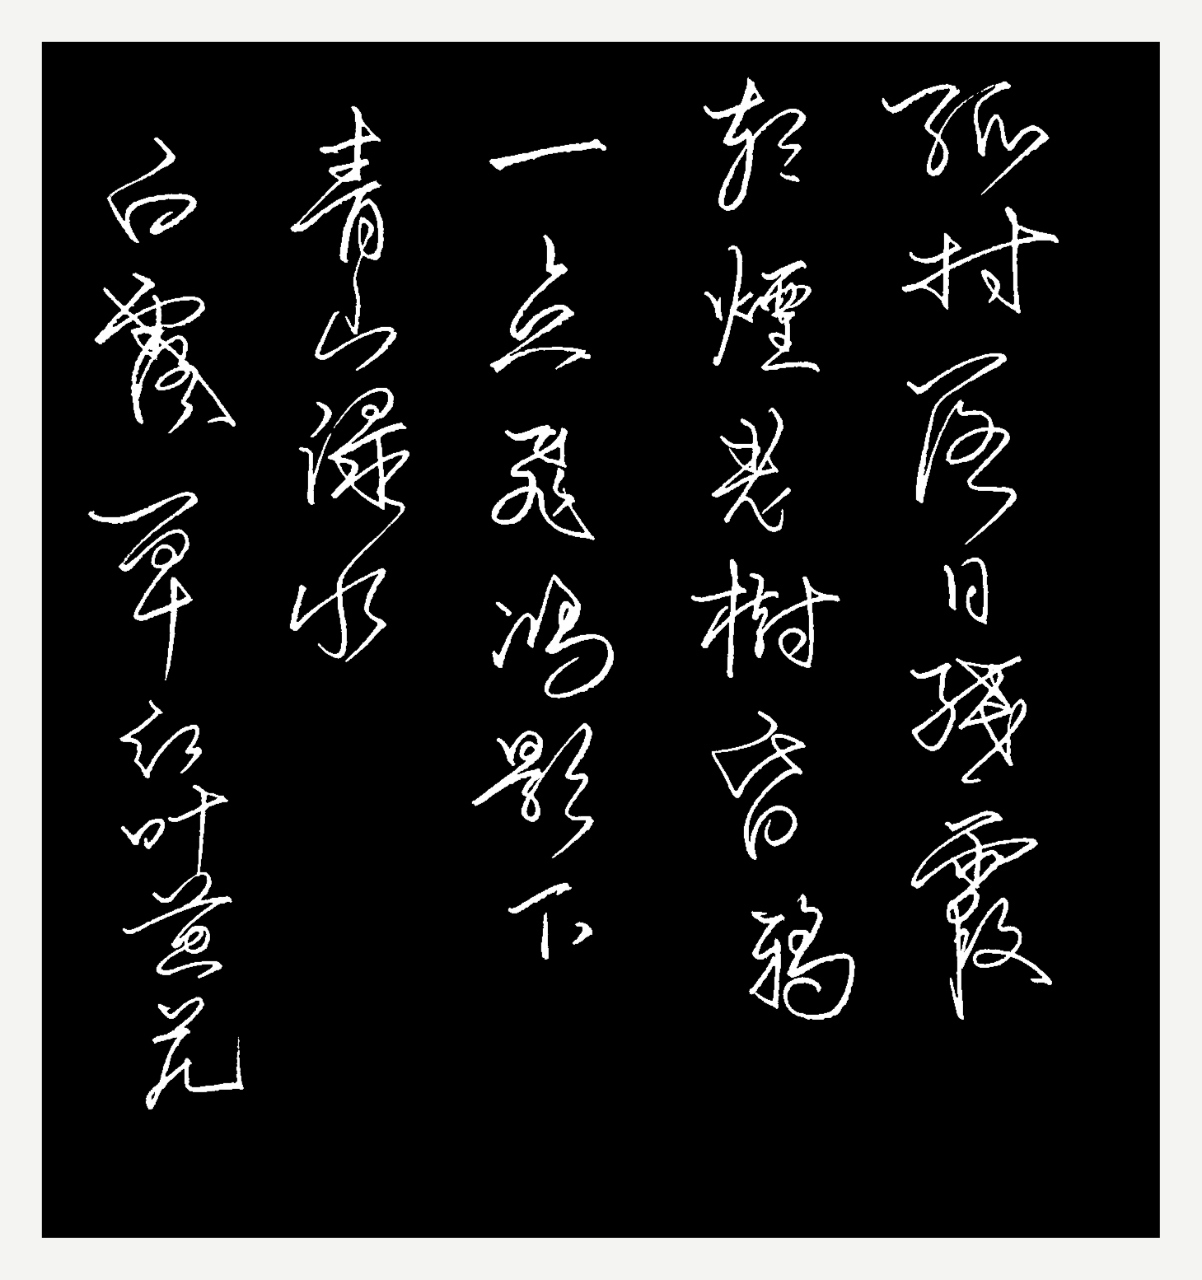 孤村落日殘霞
轻煙老樹昏鴉
一点飛鴻影下
青山绿水
白露草红叶黄花